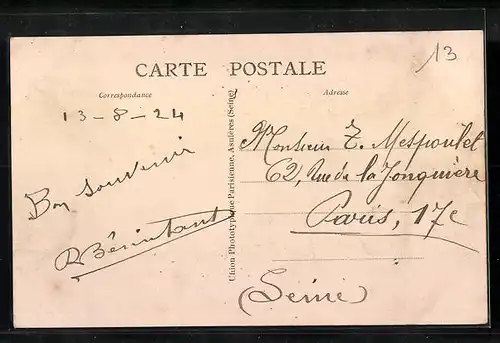 13
CARTE POSTALE
Correspondance
Adresse
13-8-24
Bon souvenir
Union Phototypique Parisienne, Asnières (Seine)
Monsieur Z. Mespoulet
62, Rue de la Jonquière
Paris, 17e
(Seine)